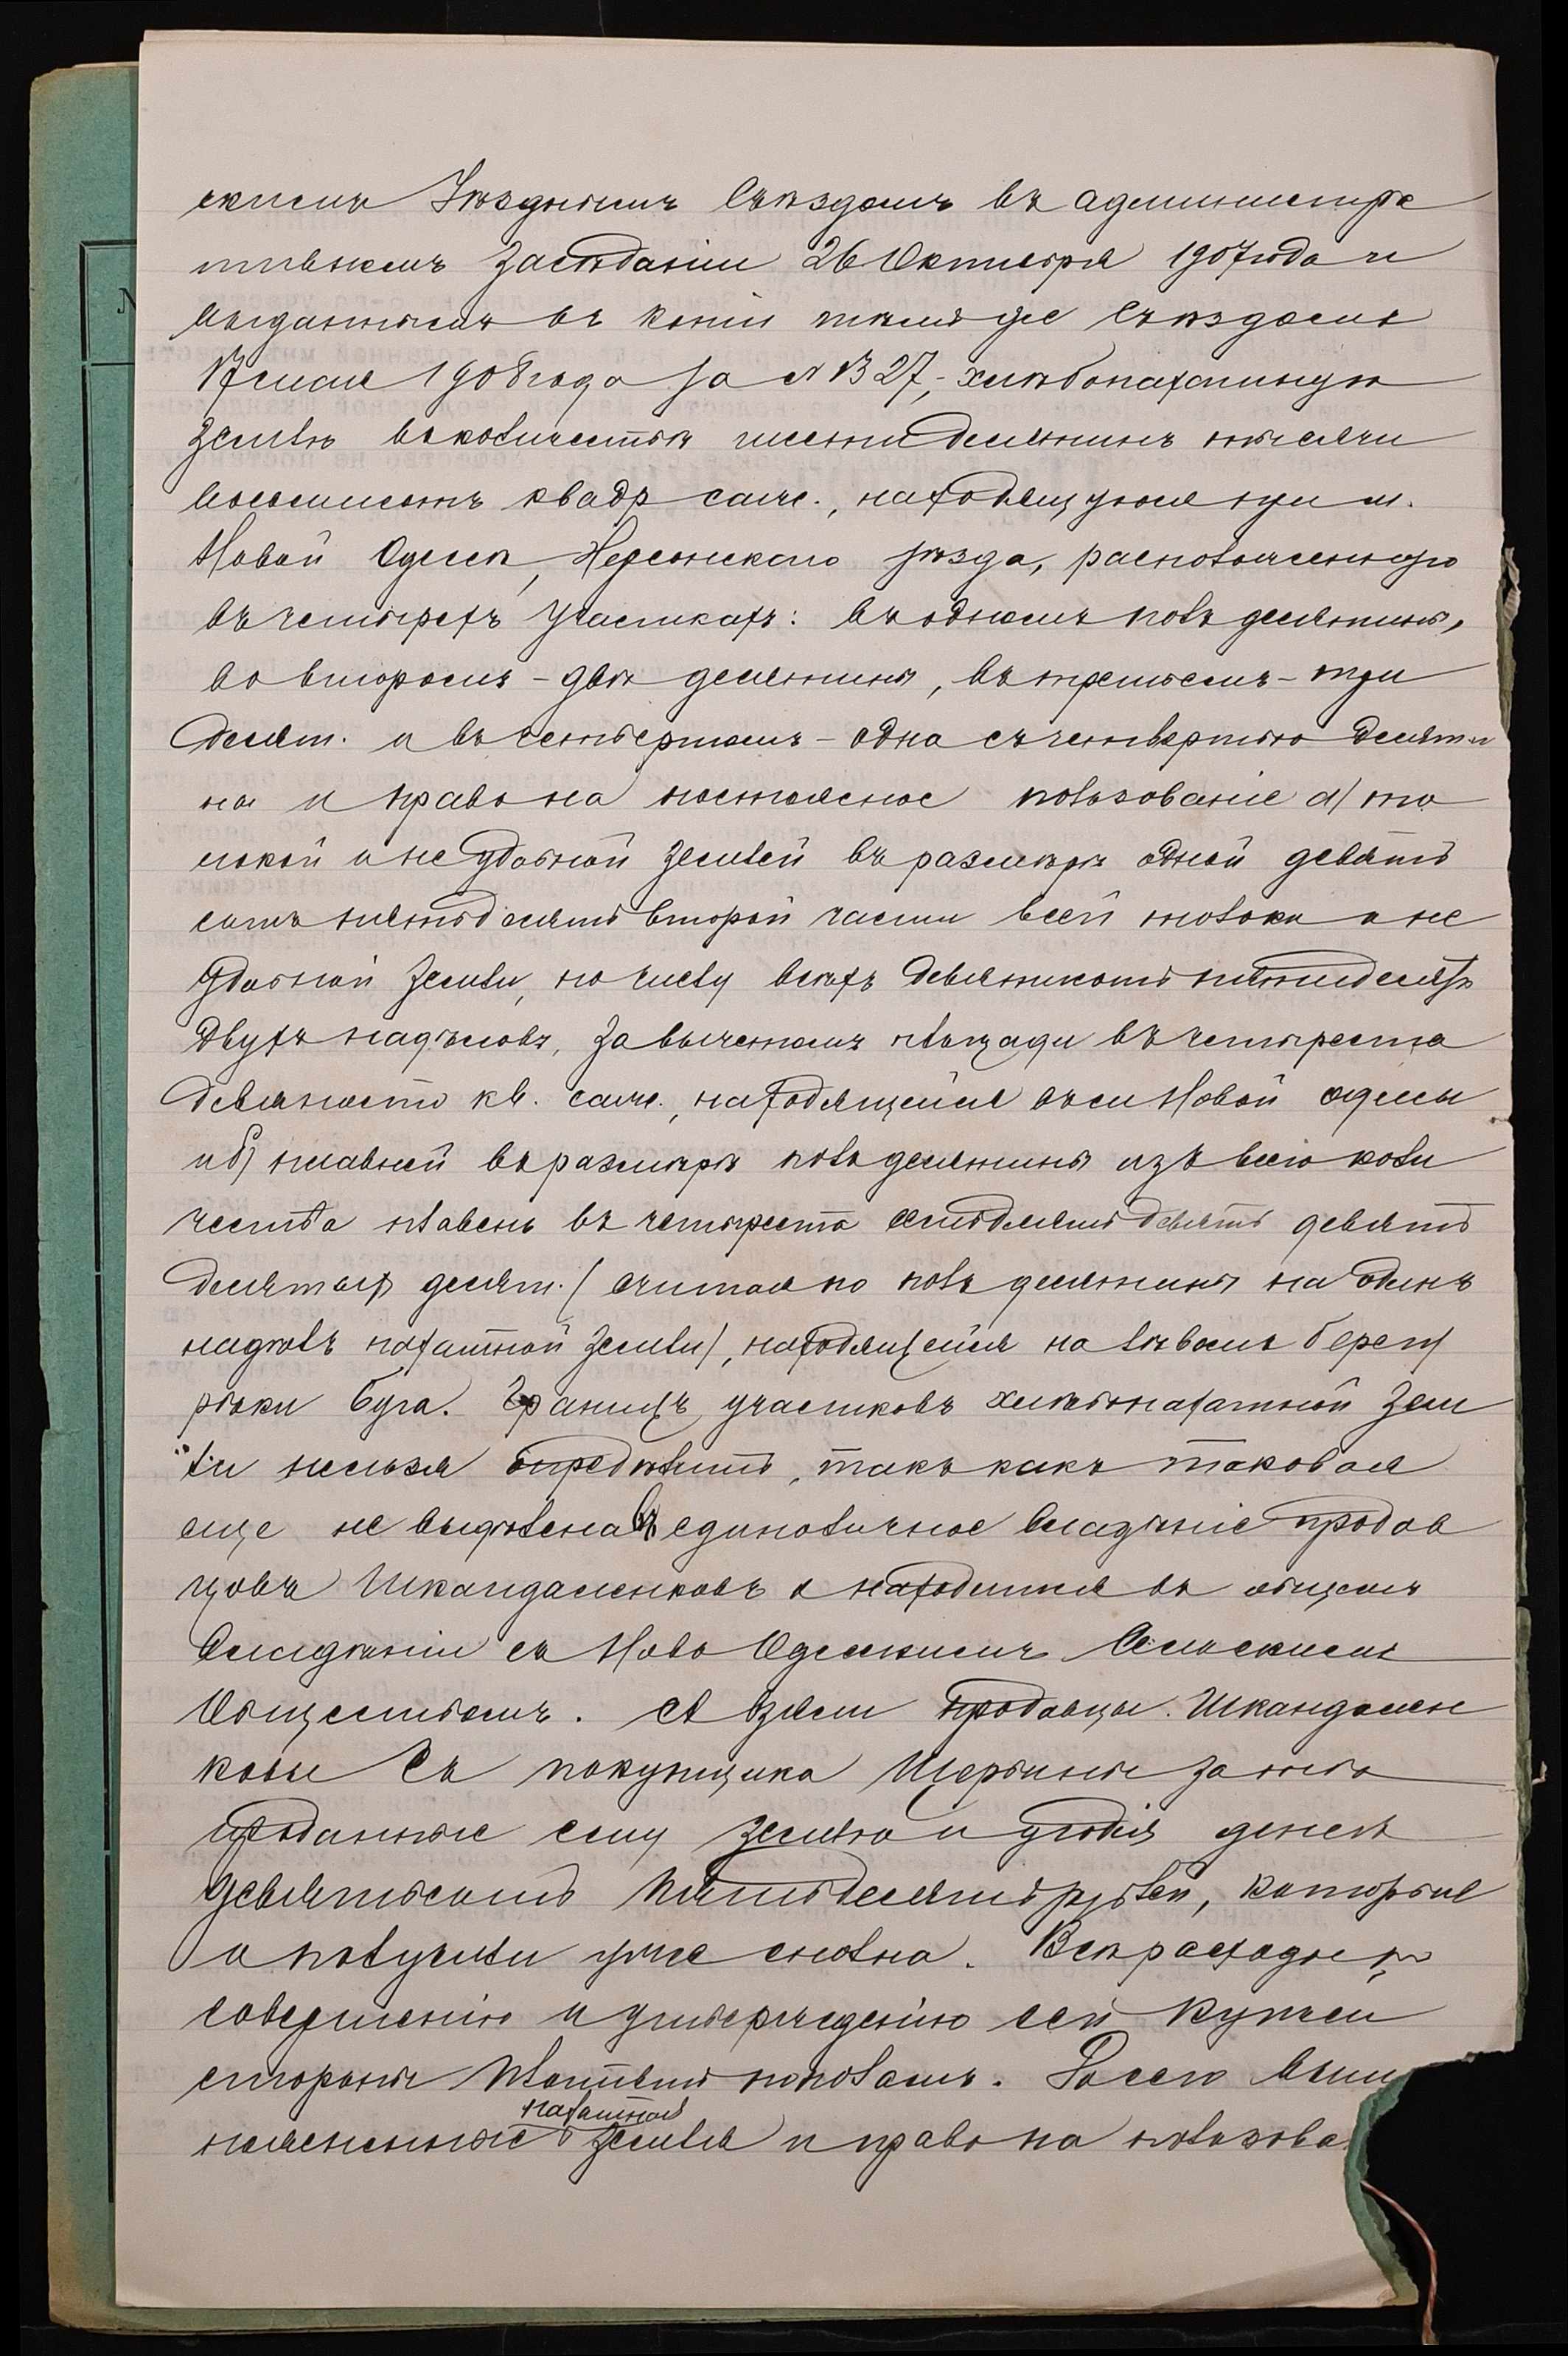 скимъ Уѣзднымъ Съѣздомъ въ администра
тивномъ засѣданіи 26 Октября 1907 года и
выданнымъ въ копіи тѣмъ же Съѣздомъ
17 мая 1908 года за № 1327,- хлѣбопахатную
землю въ количествѣ шести десятинъ тысячи
восемисотъ квадр саж., находящуюся при м.
Новой Одессѣ, Херсонскаго уѣзда, расположенную
въ четырехъ участкахъ: въ одномъ полъ десятины,
во второмъ - двѣ десятины, въ третьемъ - три
десят. и въ четвертомъ - одна съ четвертью десяти
на и право на постоянное пользованіе а/ то
локой и неудобной землей въ размѣрѣ одной девять
сотъ пятьдесятъ второй части всей толоки и не
удобной земли, по числу всѣхъ девятисотъ пятидесяти
двухъ надѣловъ, за вычетомъ площади въ четыреста
девяносто кв. саж., находящейся въ м Новой Одессы
и б/ плавней въ размѣрѣ полъ десятины изъ всего коли
чества плавень въ четыреста семьдесятъ девять девять
десятыхъ десят. /считая по полъ десятины на одинъ
надѣлъ пахатной земли/, находящейся на лѣвомъ берегу
рѣки Буга. Границъ участковъ хлѣбопахатной зем
ли нельзя опредѣлить, такъ какъ таковая
еще не выдѣлена въ единоличное владѣніе продав
цовъ Шкандаленковъ и находится въ общемъ
владѣніи съ Ново Одесскимъ Сельскимъ
Обществомъ. А взяли продавцы Шкандален
ковы съ покупщика Щербины за тѣ
проданные ему землю и угодія денегъ
девятьсотъ пятьдесятъ рублей, которые
и получили уже сполна. Всѣ расходы по
совершенію и утвержденію сей купчей
стороны платятъ пополамъ. До сего выше
пахатная
помянутые земля и право на пользова